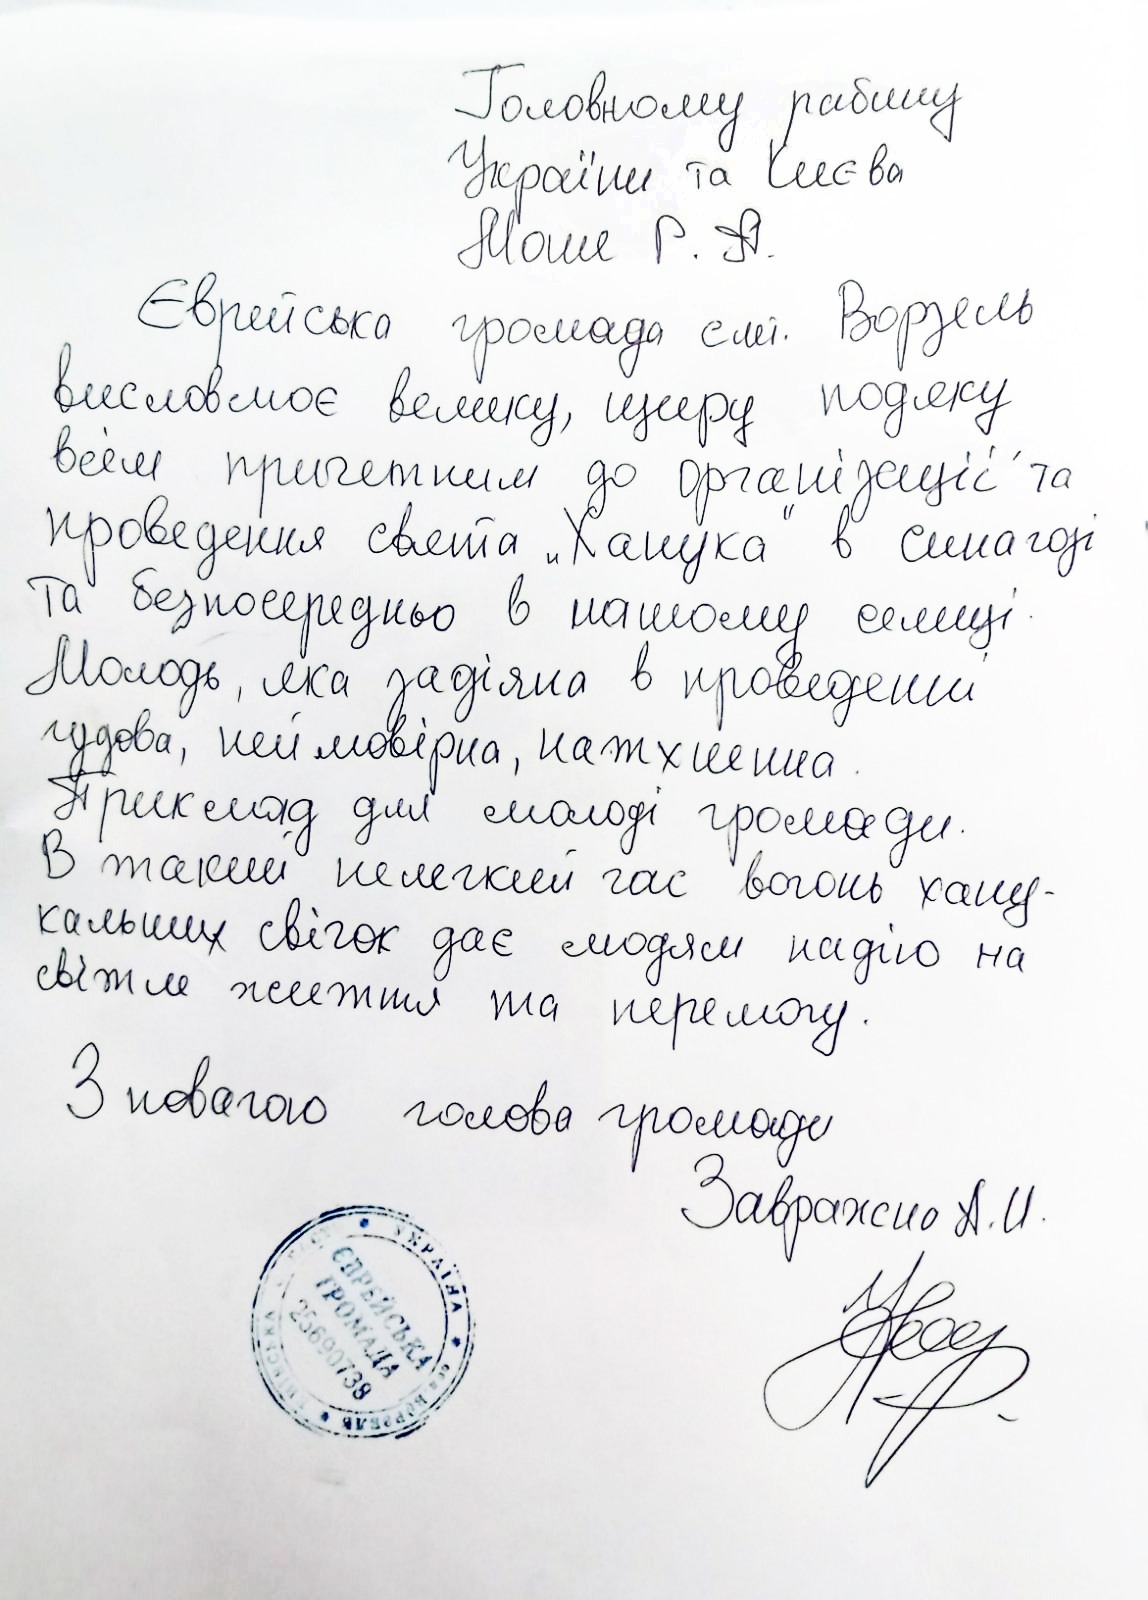 Головному рабину
України та Києва
Моше Р. А.
Єврейська громада смт. Ворзель
висловлює велику, щиру подяку
всім причетним до організації та
проведення свята „Ханука" в синагозі
та безпосередньо в нашому селищі.
Молодь, яка задіяна в проведенні
чудова, неймовірна, натхненна.
Приклад для молоді громади.
В такий нелегкий час вогонь хану-
кальних свічок дає людям надію на
світле життя та перемогу.
З повагою голова громади
Завражно А. И.
УКРАЇНА
ЄВРЕЙСЬКА
ГРОМАДА
25690738
КИЇВСЬКА
ВОРЗЕЛЬ